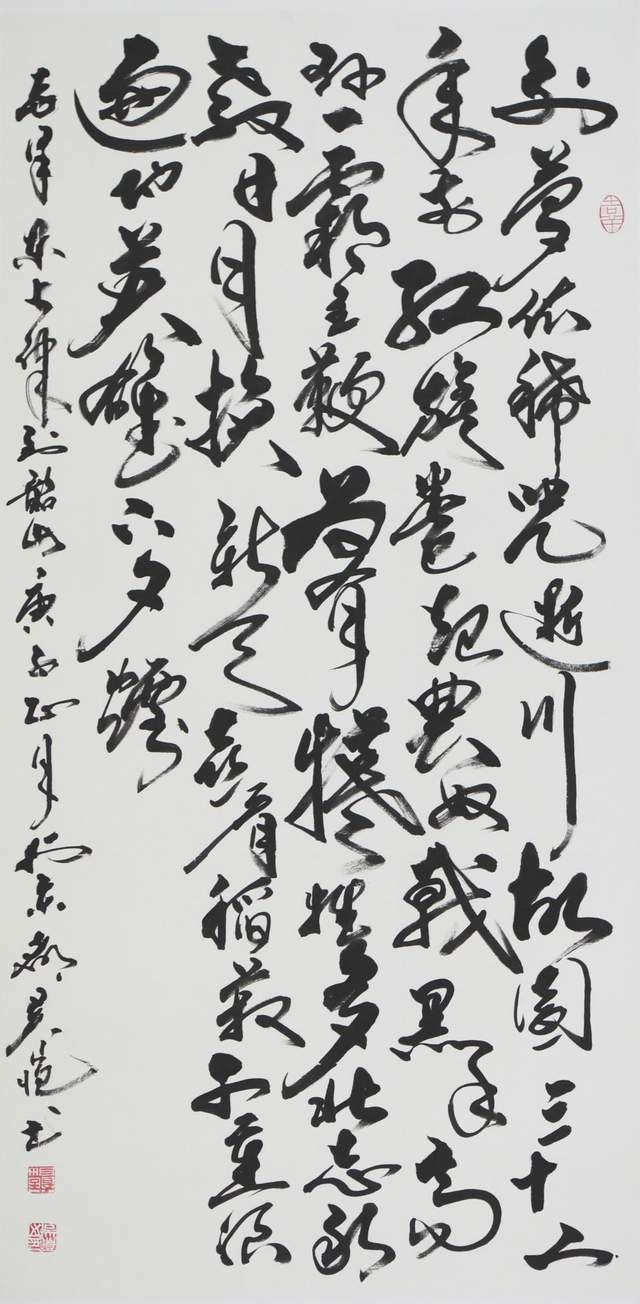 别夢依稀咒逝川故園三十二
年前红旗卷起農奴戟黑手高
懸霸主鞭为有犧牲多壮志敢
教日月换新天喜看稻菽千重浪
遍地英雄下夕煙
毛泽東七律到韶山庚子正月於京都书